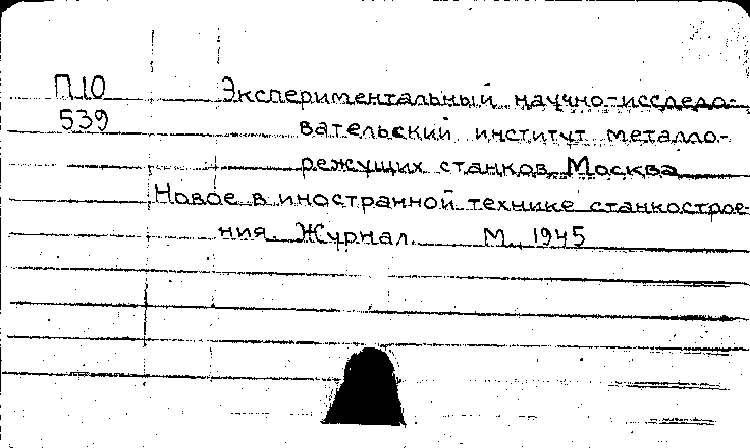 П 10 Экспериментальный научно-исследо-
539 вательский институт металло-
режущих станков. Москва
Новое в иностранной технике станкострое-
ния. Журнал. М., 1945